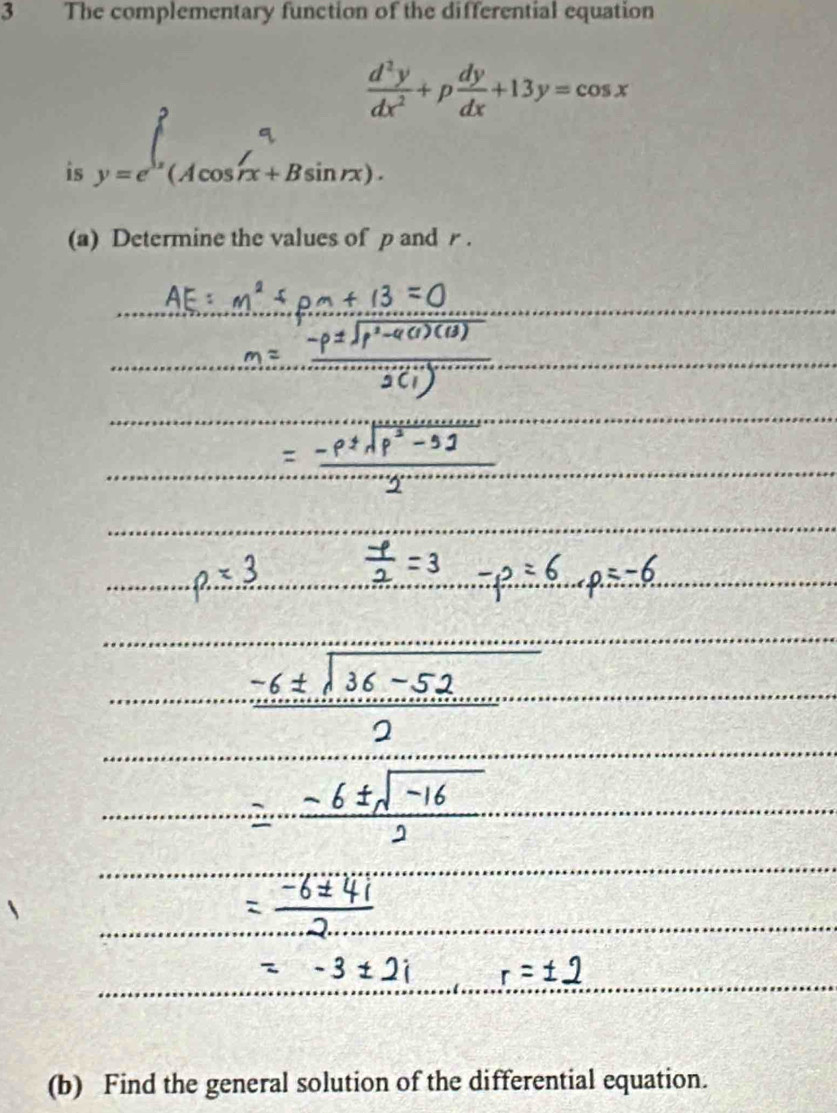 3 The complementary function of the differential equation
d²y/dx² + p dy/dx + 13y = cos x
p q
is y = e³ˣ (A cos rx + B sin rx).
(a) Determine the values of p and r.
AE: m² + pm + 13 = 0
m = (-p ± √(p² - 4(1)(13)))/2(1)
= (-p ± √(p² - 52))/2
p = 3 -p/2 = 3 -p = 6, p = -6
(-6 ± √(36 - 52))/2
= (-6 ± √(-16))/2
= (-6 ± 4i)/2
= -3 ± 2i, r = ±2
(b) Find the general solution of the differential equation.